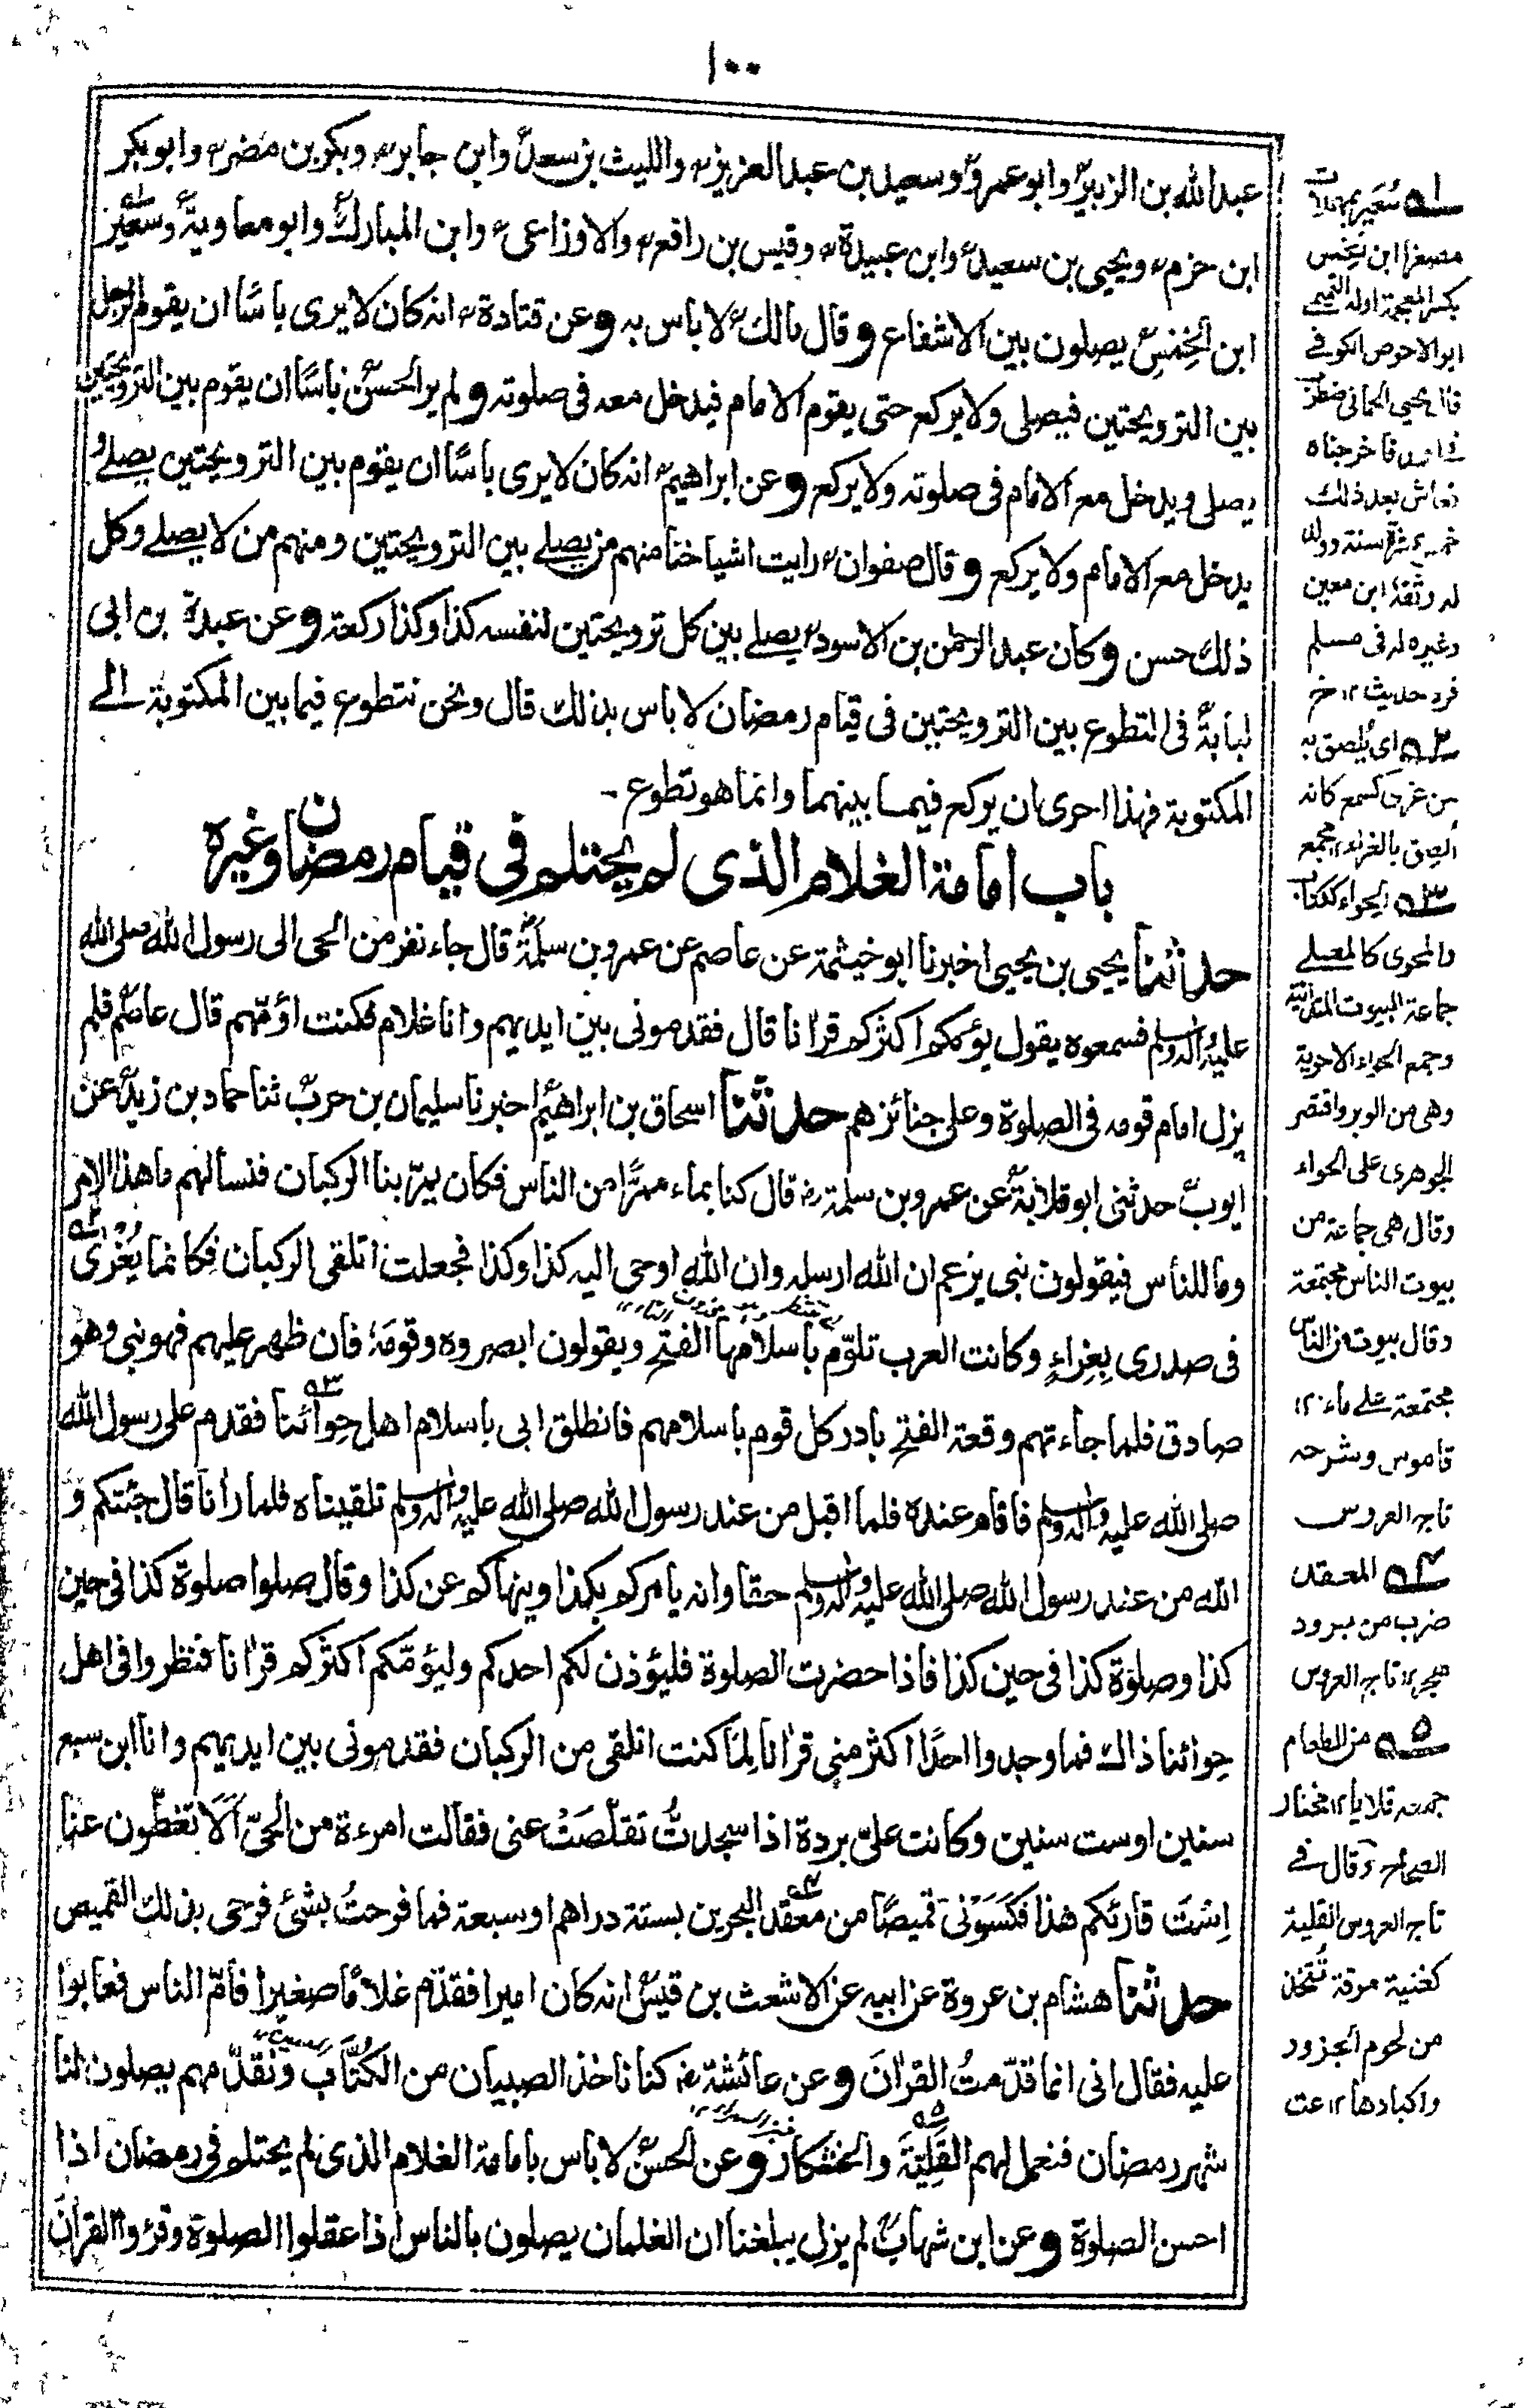 ١٠٠
عبدالله بن الزبير وابو عمرو وسعيد بن عبد العزيز والليث بن سعد وابن جابر وبكر بن مضر وابو بكر
ابن حزم ويحيى بن سعيد وابن عبيدة وقيس بن رافع والاوزاعى وابن المبارك وابو معاوية وسعير
ابن الخمس يصلون بين الاشفاع وقال مالك لا باس به وعن قتادة انه كان لا يرى باسًا ان يقوم الرجل
بين الترويحتين فيصلى ولا يركع حتى يقوم الامام فيدخل معه فى صلوته ولم ير الحسن باسًا ان يقوم بين الترويحتين
يصلى ويدخل مع الامام فى صلوته ولا يركع وعن ابراهيم انه كان لا يرى باسًا ان يقوم بين الترويحتين يصلے و
يدخل مع الامام ولا يركع وقال صفوان رايت اشياخنا منهم من يصلے بين الترويحتين ومنهم من لا يصلے وكل
ذلك حسن وكان عبد الرحمن بن الاسود يصلے بين كل ترويحتين لنفسه كذا وكذا ركعة وعن عبدة بن ابى
لبابة فى التطوع بين الترويحتين فى قيام رمضان لا باس بذلك قال ونحن نتطوع فيما بين المكتوبة الے
المكتوبة فهذا احرى ان يركع فيما بينهما وانما هو تطوع -
باب امامة الغلام الذى لم يحتلم فى قيام رمضان وغيره
حدثنا يحيى بن يحيى اخبرنا ابو خيثمة عن عاصم عن عمرو بن سلمة قال جاء نفر من الحى الى رسول الله صلى الله
عليه وآله وسلم فسمعوه يقول يؤمكم اكثركم قرانا قال فقدمونى بين ايديهم وانا غلام فكنت اؤمّهم قال عاصم فلم
يزل امام قومه فى الصلوة وعلى جنائزهم حدثنا اسحاق بن ابراهيم اخبرنا سليمان بن حرب ثنا حماد بن زيد عن
ايوب حدثنى ابو قلابة عن عمرو بن سلمة قال كنا بماء ممرًّا من الناس فكان يمرّ بنا الركبان فنسالهم ما هذا الامر
وما للناس فيقولون نبى يزعم ان الله ارسله وان الله اوحى اليه كذا وكذا فجعلت اتلقى الركبان فكانما يُغرٰى
فى صدرى بِغِراءٍ وكانت العرب تلوّم باسلامها الفتح ويقولون ابصروه وقومَهُ فان ظهر عليهم فهو نبى وهو
صادق فلما جاءتهم وقعة الفتح بادر كل قوم باسلامهم فانطلق ابى باسلام اهل حِوائنا فقدم على رسول الله
صلى الله عليه وآله وسلم فاقام عنده فلما اقبل من عند رسول الله صلى الله عليه وآله وسلم تلقيناه فلما رانا قال جئتكم و
الله من عند رسول الله صلى الله عليه وآله وسلم حقا وانه يامركم بكذا وينهاكم عن كذا وقال صلوا صلوة كذا فى حين
كذا وصلوة كذا فى حين كذا فاذا حضرت الصلوة فليؤذن لكم احدكم وليؤمّكم اكثركم قرانا فنظروا فى اهل
حِوائنا ذاك فما وجدوا احدًا اكثر منى قرانا لِمَا كنت اتلقى من الركبان فقدمونى بين ايديهم وانا ابن سبع
سنين او ست سنين وكانت علىّ بردة اذا سجدتُّ تقلّصَتْ عنى فقالت امرءة من الحىّ اَلَا تغطّون عنا
اِسْتَ قارئكم هذا فكَسَوْنىَ قميصًا من معقد البحرين بستة دراهم او سبعة فما فرحتُ بشئ فرحى بذلك القميص
حدثنا هشام بن عروة عن ابيه عن الاشعث بن قيس انه كان اميرا فقدّم غلامًا صغيرا فامّ الناس فعابوا
عليه فقال انى انما قدّمتُ القرآنَ وعن عائشة كنا ناخذ الصبيان من الكُتّاب ونقدّمهم يصلون لنا
شهر رمضان فنعمل لهم القَلِيّةَ والخشكار وعن الحسن لا باس بامامة الغلام الذى لم يحتلم فى رمضان اذا
احسن الصلوة وعن ابن شهاب لم يزل يبلغنا ان الغلمان يصلون بالناس اذا عقلوا الصلوة وقرؤا القرآن
ـ١ـ سُعَير بمهملات
مصغرا ابن خِمس
بكسر المعجمة اوله التميمى
ابو الاحوص الكوفے
قال يحيى الحمانى
فاخرجناه
فعاش بعد ذلك
خمس عشرة سنة وولد
له وثقه ابن معين
وغيره له فى مسلم
فرد حديث ١٢
ـ٢ـ اى يُلصق به
من غرى كسمع كانه
اُلصق بالغراء ١٢ مجمع
ـ٣ـ الحِواء ككتاب
والمحوى كالمعلى
جماعة البيوت المتدانية
وجمع الحواء الاحوية
وهى من الوبر واقتصر
الجوهرى على الحواء
وقال هى جماعة من
بيوت الناس مجتمعة
وقال بيوت من الناس
مجتمعة علے ماء ١٢
قاموس وشرحه
تاج العروس
ـ٤ـ المعقد
ضرب من برود
هجر ١٢ تاج العروس
ـ٥ـ من الطعام
جمعه قلايا ١٢ مختار
الصحاح وقال فے
تاج العروس القلية
كغنية مرقة تُتخذ
من لحوم الجزور
واكبادها ١٢